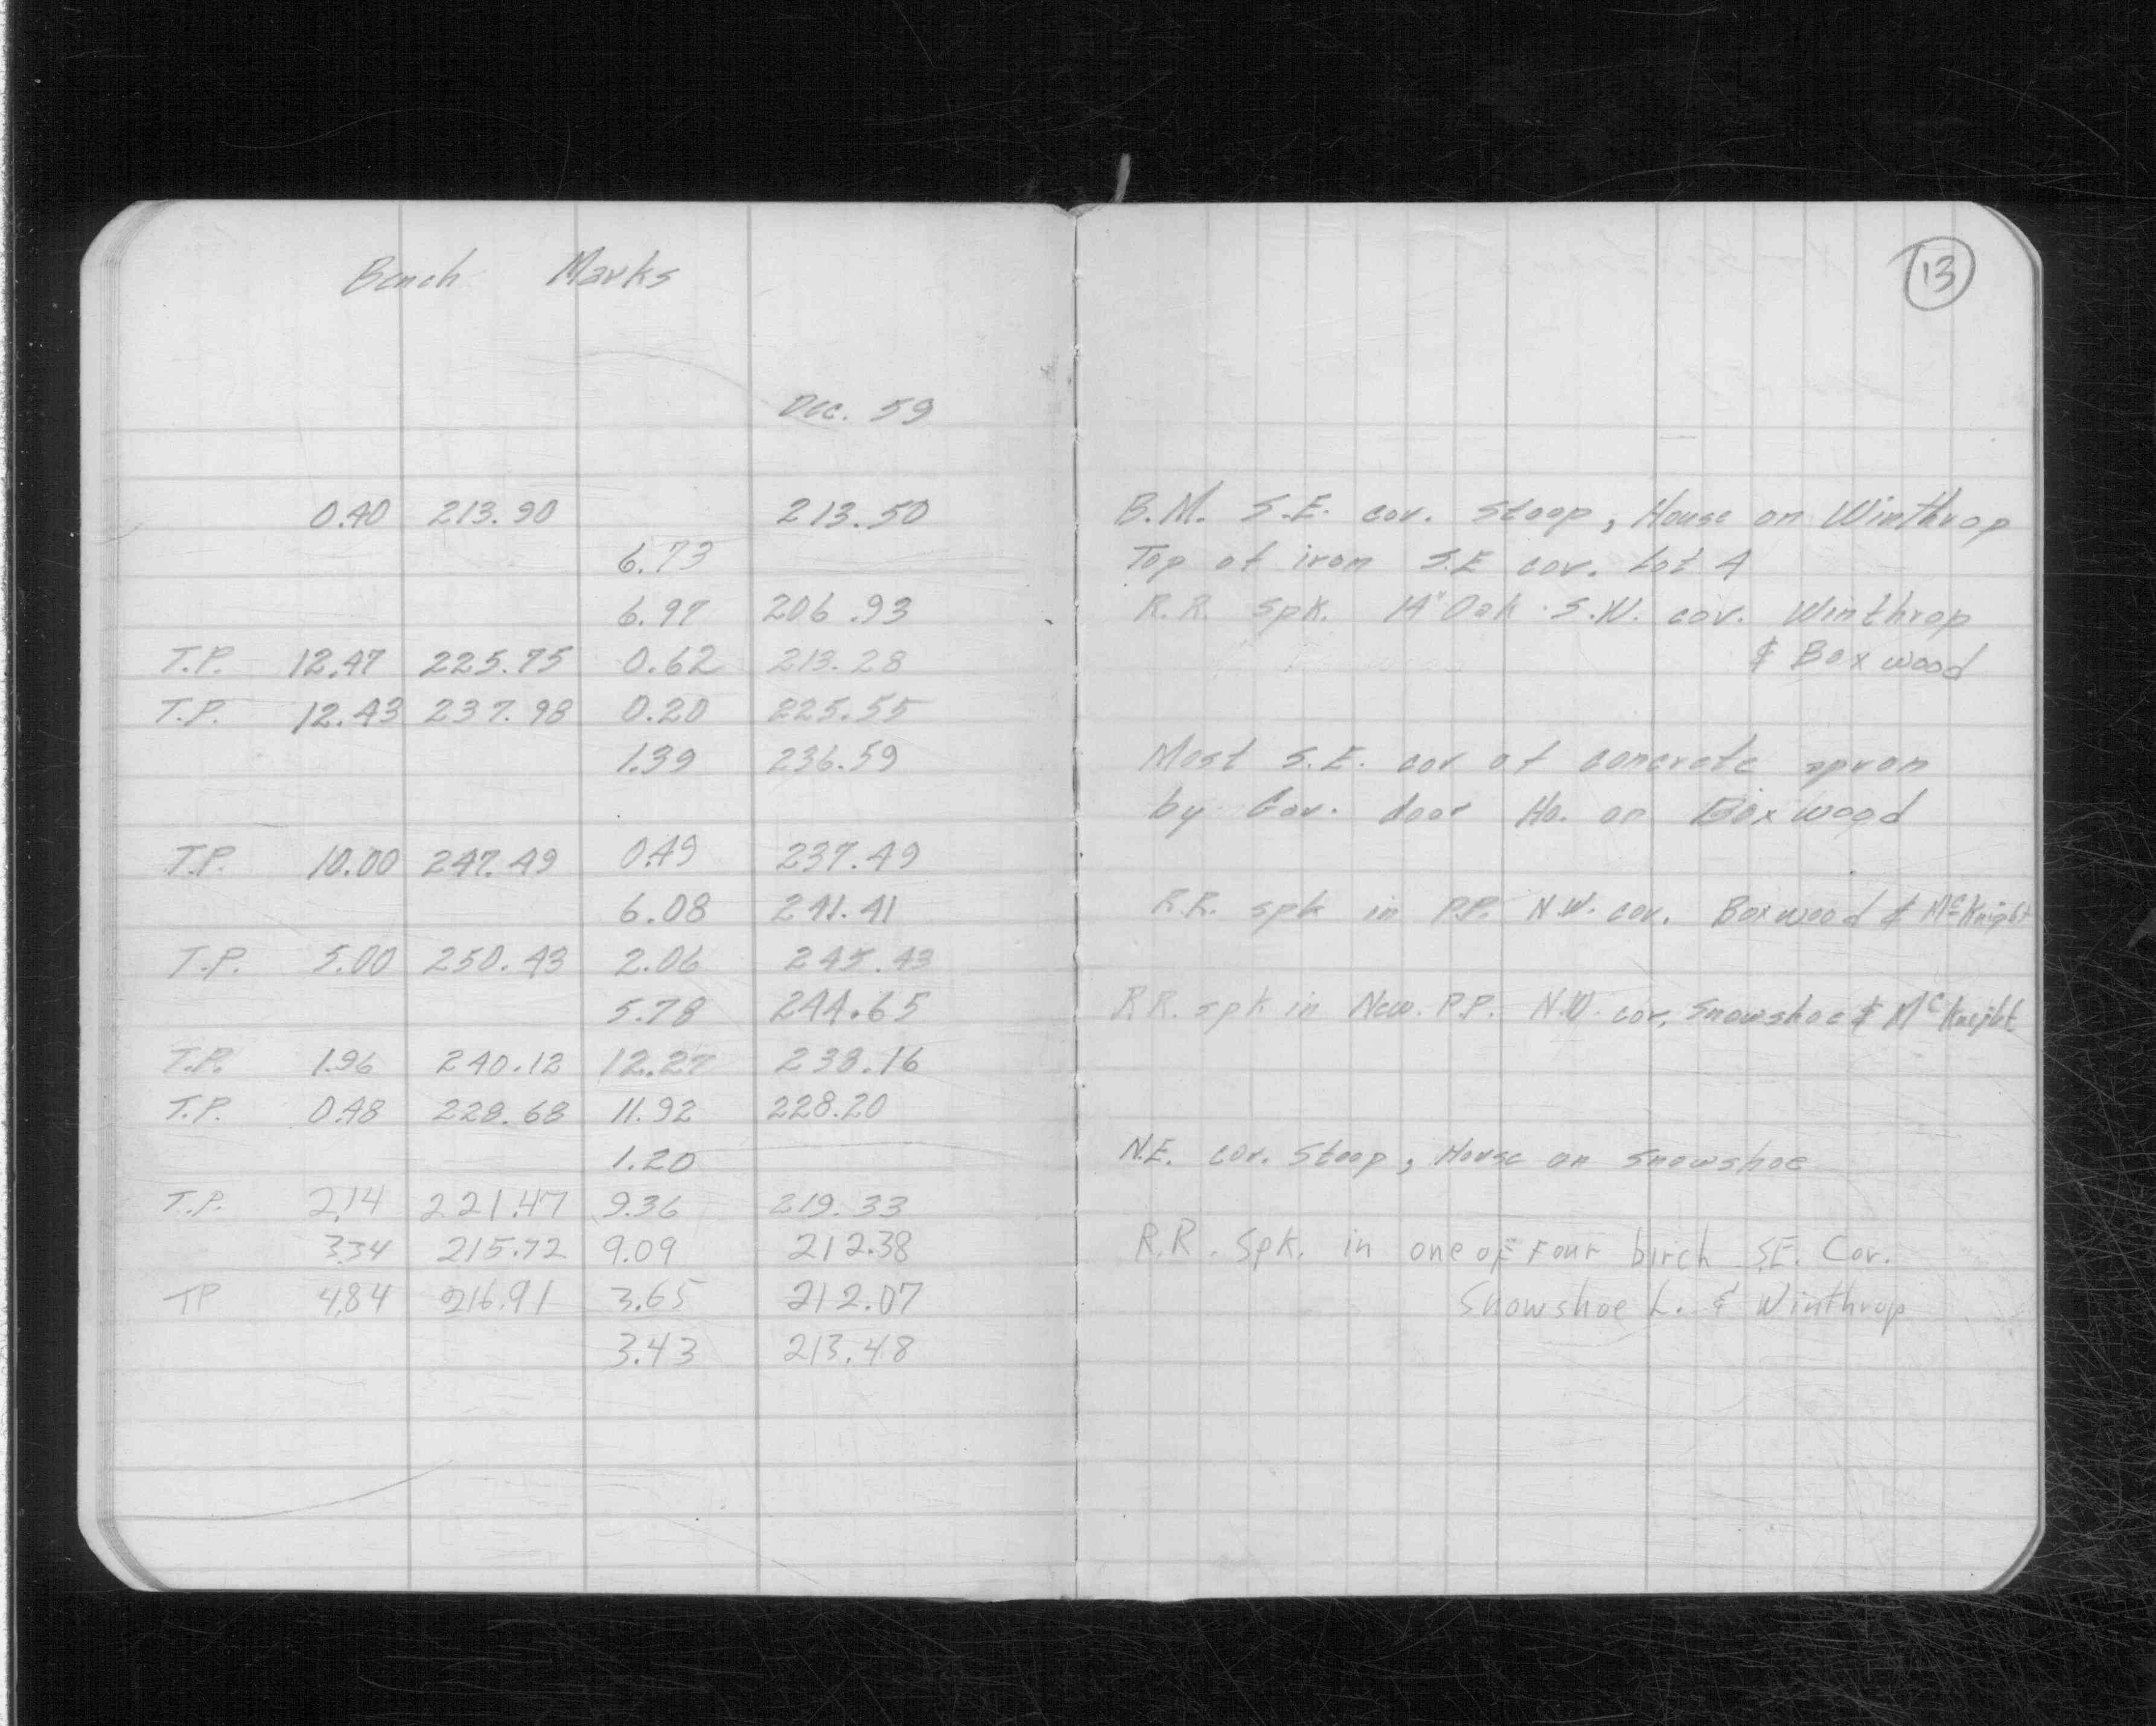 Bench Marks
13
Dec. 59
0.40 213.90 213.50 B.M. S.E. cor. Stoop, House on Winthrop
6.73 Top of iron S.E cor. Lot 4
6.97 206.93 R.R. Spk. 14" Oak S.W. cor. Winthrop
T.P. 12.47 225.75 0.62 213.28 & Boxwood
T.P. 12.43 237.98 0.20 225.55
1.39 236.59 Most S.E. cor of concrete apron
by Gar. door Ho. on Boxwood
T.P. 10.00 247.49 0.49 237.49
6.08 241.41 R.R. spk in P.P. N.W. cor. Boxwood & McKnight
T.P. 5.00 250.43 2.06 245.43
5.78 244.65 R.R. spk in New. P.P. N.W. cor. Snowshoe & McKnight
T.P. 1.96 240.12 12.27 238.16
T.P. 0.48 228.68 11.92 228.20
1.20 N.E. cor. Stoop, House on Snowshoe
T.P. 2.14 221.47 9.36 219.33
3.34 215.72 9.09 212.38 R.R. Spk. in one of Four birch S.E. Cor.
TP 4.84 216.91 3.65 212.07 Snowshoe L. & Winthrop
3.43 213.48